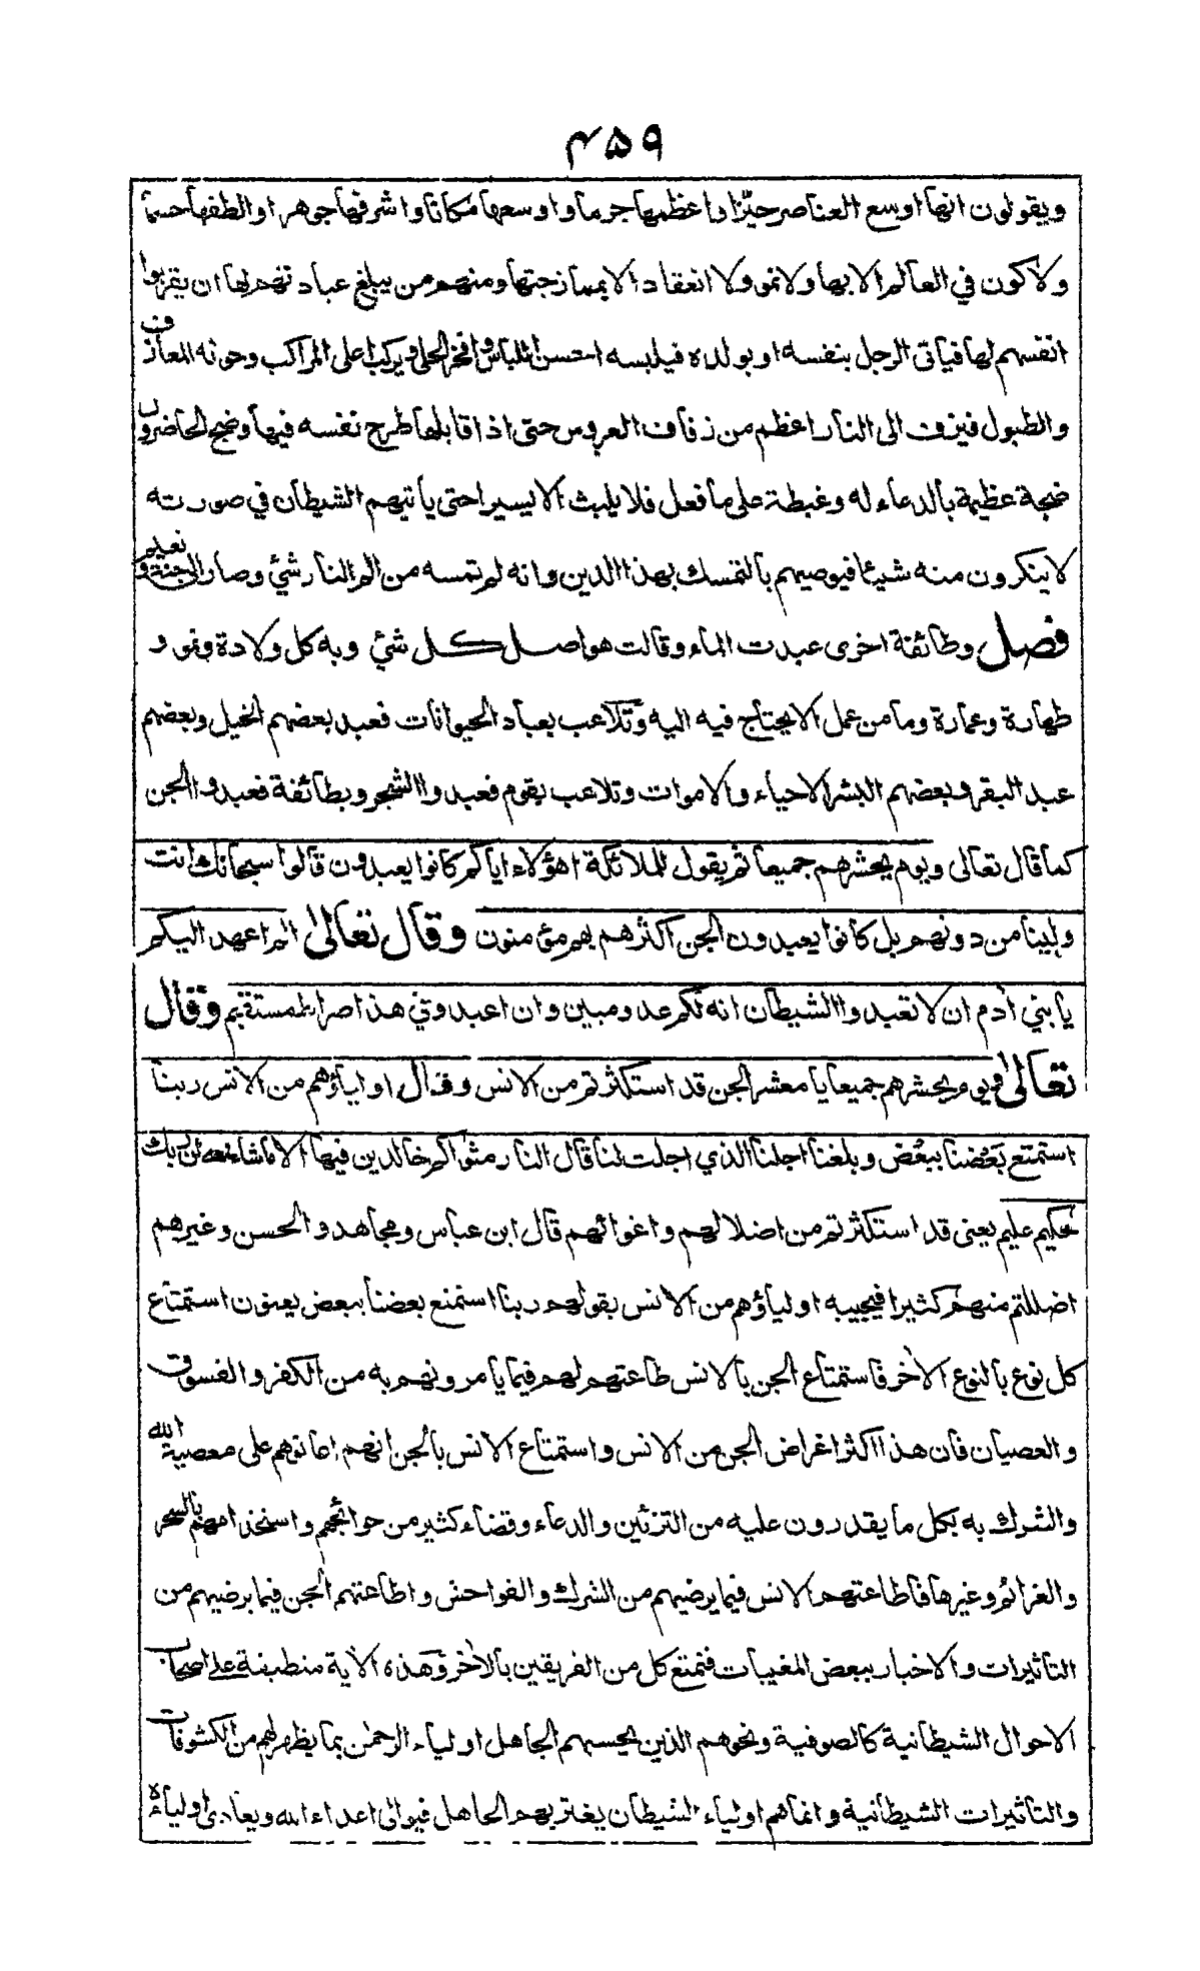 ۴۵۹
ويقولون انها اوسع العناصر حيّزا واعظمها جرما واوسعها مكانا واشرفها جوهرا والطفها جسما
ولا كون في العالم الا بها ولا نمو ولا انعقاد الا بممازجتها ومنهم من يبلغ عبادتهم لها ان يقربوا
انفسهم لها فياتى الرجل بنفسه او بولده فيلبسه احسن اللباس وافخر الحلى ويركب اعلى المراكب وحوله المعازف
والطبول فيزف الى النار اعظم من زفاف العروس حتى اذا قابلها طرح نفسه فيها وضج الحاضرون
ضجة عظيمة بالدعاء له وغبطة على ما فعل فلا يلبث الا يسيرا حتى ياتيهم الشيطان في صورته
لا ينكرون منه شيئا فيوصيهم بالتمسك بهذا الدين وانه لم تمسه من الم النار شئ وصار الى جنة ونعيم
فصل وطائفة اخرى عبدت الماء وقالت هو اصل كل شئ وبه كل ولادة ونمو و
طهارة وعمارة وما من عمل الا يحتاج فيه اليه وتلاعب بعباد الحيوانات فعبد بعضهم الخيل وبعضهم
عبد البقر وبعضهم البشر الاحياء والاموات وتلاعب بقوم فعبدوا الشجر وبطائفة فعبدوا الجن
كما قال تعالى ويوم يحشرهم جميعا ثم يقول للملائكة اهؤلاء اياكم كانوا يعبدون قالوا سبحانك انت
ولينا من دونهم بل كانوا يعبدون الجن اكثرهم بهم مؤمنون وقال تعالى الم اعهد اليكم
يا بني آدم ان لا تعبدوا الشيطان انه لكم عدو مبين وان اعبدوني هذا صراط مستقيم وقال
تعالى ويوم يحشرهم جميعا يا معشر الجن قد استكثرتم من الانس وقال اولياؤهم من الانس ربنا
استمتع بعضنا ببعض وبلغنا اجلنا الذي اجلت لنا قال النار مثواكم خالدين فيها الا ماشاء الله ان ربك
حكيم عليم يعنى قد استكثرتم من اضلالهم واغوائهم قال ابن عباس ومجاهد والحسن وغيرهم
اضللتم منهم كثيرا فيجيبه اولياؤهم من الانس بقولهم ربنا استمتع بعضنا ببعض يعنون استمتاع
كل نوع بالنوع الآخر فاستمتاع الجن بالانس طاعتهم لهم فيما يامرونهم به من الكفر والفسوق
والعصيان فان هذا اكثر اغراض الجن من الانس واستمتاع الانس بالجن انهم اعانوهم على معصية الله
والشرك به بكل ما يقدرون عليه من التزئين والدعاء وقضاء كثير من حوائجهم واستخدامهم بالسحر
والعزائم وغيرها فاطاعتهم الانس فيما يرضيهم من الشرك والفواحش واطاعتهم الجن فيما يرضيهم من
التاثيرات والاخبار ببعض المغيبات فتمتع كل من الفريقين بالآخر وهذه الآية منطبقة على اصحاب
الاحوال الشيطانية كالصوفية ونحوهم الذين يحسبهم الجاهل اولياء الرحمٰن بما يظهر لهم من الكشوفات
والتاثيرات الشيطانية وانما هم اولياء الشيطان يغتر بهم الجاهل فيوالى اعداء الله ويعادى اولياءه